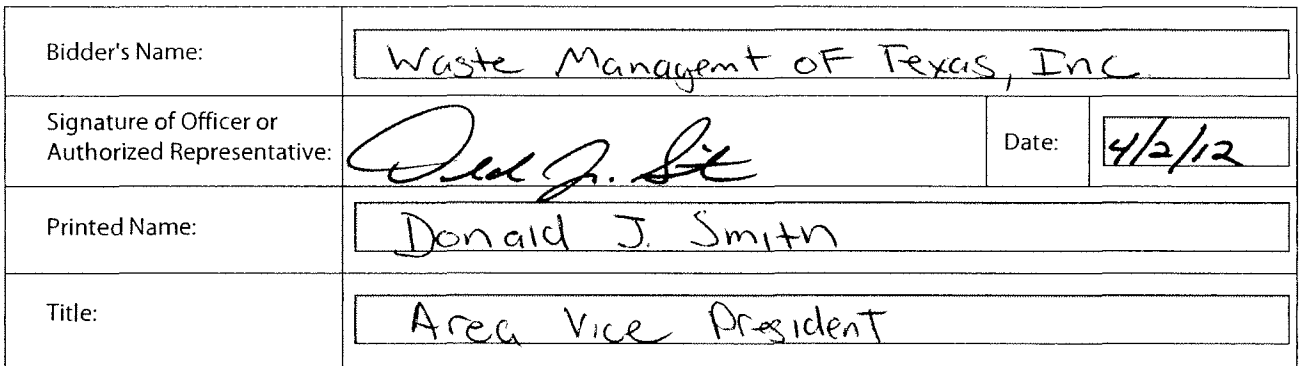 Bidder's Name: Waste Managemt of Texas, Inc
Signature of Officer or
Authorized Representative: Date: 4/2/12
Printed Name: Donald J. Smith
Title: Area Vice President